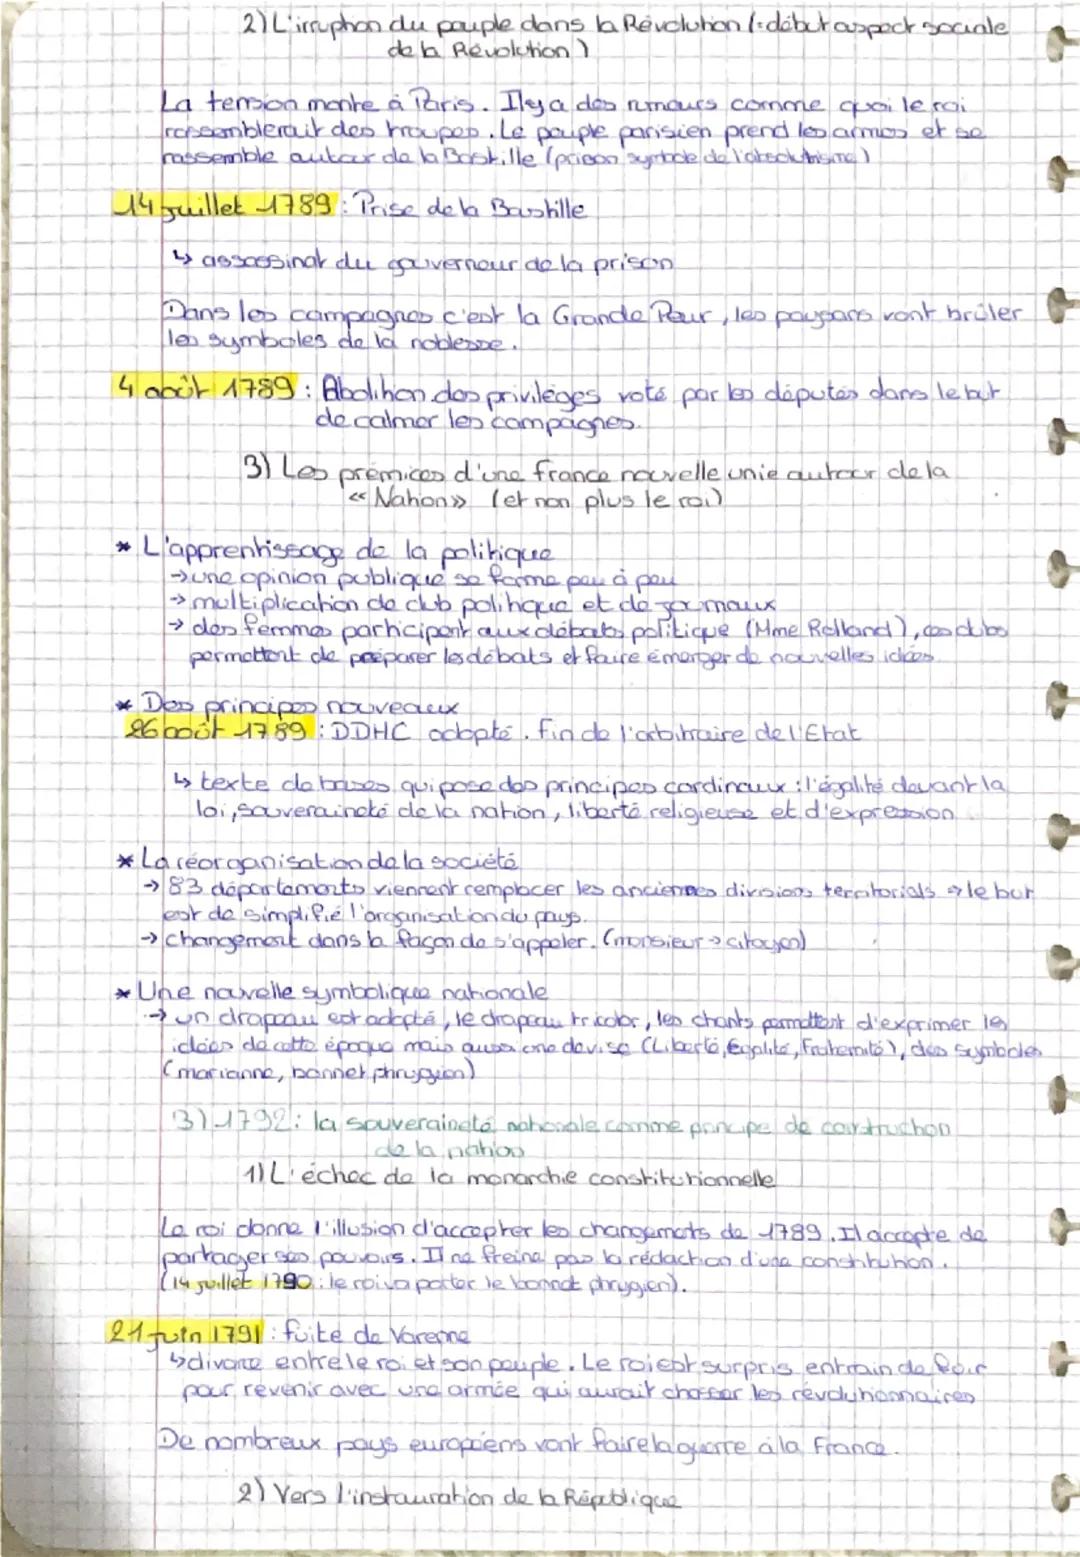 2) L'irruption du peuple dans la Révolution (= début aspect sociale
de la Révolution)
La tension monte à Paris. Il y a des rumeurs comme quoi le roi
rassemblerait des troupes. Le peuple parisien prend les armes et se
rassemble autour de la Bastille (prison symbole de l'absolutisme)
14 juillet 1789 : Prise de la Bastille
↳ assassinat du gouverneur de la prison
Dans les campagnes c'est la Grande Peur, les paysans vont brûler
les symboles de la noblesse.
4 août 1789 : Abolition des privilèges voté par les députés dans le but
de calmer les campagnes.
3) Les prémices d'une france nouvelle unie autour de la
« Nation » (et non plus le roi)
* L'apprentissage de la politique
→ une opinion publique se forme peu à peu
→ multiplication de club politique et de journaux
→ des femmes participent aux débats politique (Mme Rolland), ces clubs
permettent de préparer les débats et faire émerger de nouvelles idées.
* Des principes nouveaux
26 août 1789 : DDHC adopté. fin de l'arbitraire de l'Etat
↳ texte de bases qui pose des principes cardinaux : l'égalité devant la
loi, souveraineté de la nation, liberté religieuse et d'expression
* La réorganisation de la société
→ 83 départements viennent remplacer les anciennes divisions territorials → le but
est de simplifié l'organisation du pays.
→ changement dans la façon de s'appeler. (monsieur → citoyen)
* Une nouvelle symbolique nationale
→ un drapeau est adopté, le drapeau tricolor, les chants permettent d'exprimer les
idées de cette époque mais aussi une devise (Liberté, Egalité, Fraternité), des symboles
(marianne, bonnet phrygien)
3) 1792 : la souveraineté nationale comme principe de construction
de la nation
1) L'échec de la monarchie constitutionnelle
Le roi donne l'illusion d'accepter les changemets de 1789. Il accepte de
partager ses pouvoirs. Il ne freine pas la rédaction d'une constitution.
(14 juillet 1790 : le roi va porter le bonnet phrygien).
21 juin 1791 : fuite de Varenne
↳ divorce entre le roi et son peuple. Le roi est surpris entrain de fuir
pour revenir avec une armée qui aurait chasser les révolutionnaires
De nombreux pays européens vont faire la guerre à la France.
2) Vers l'instauration de la République